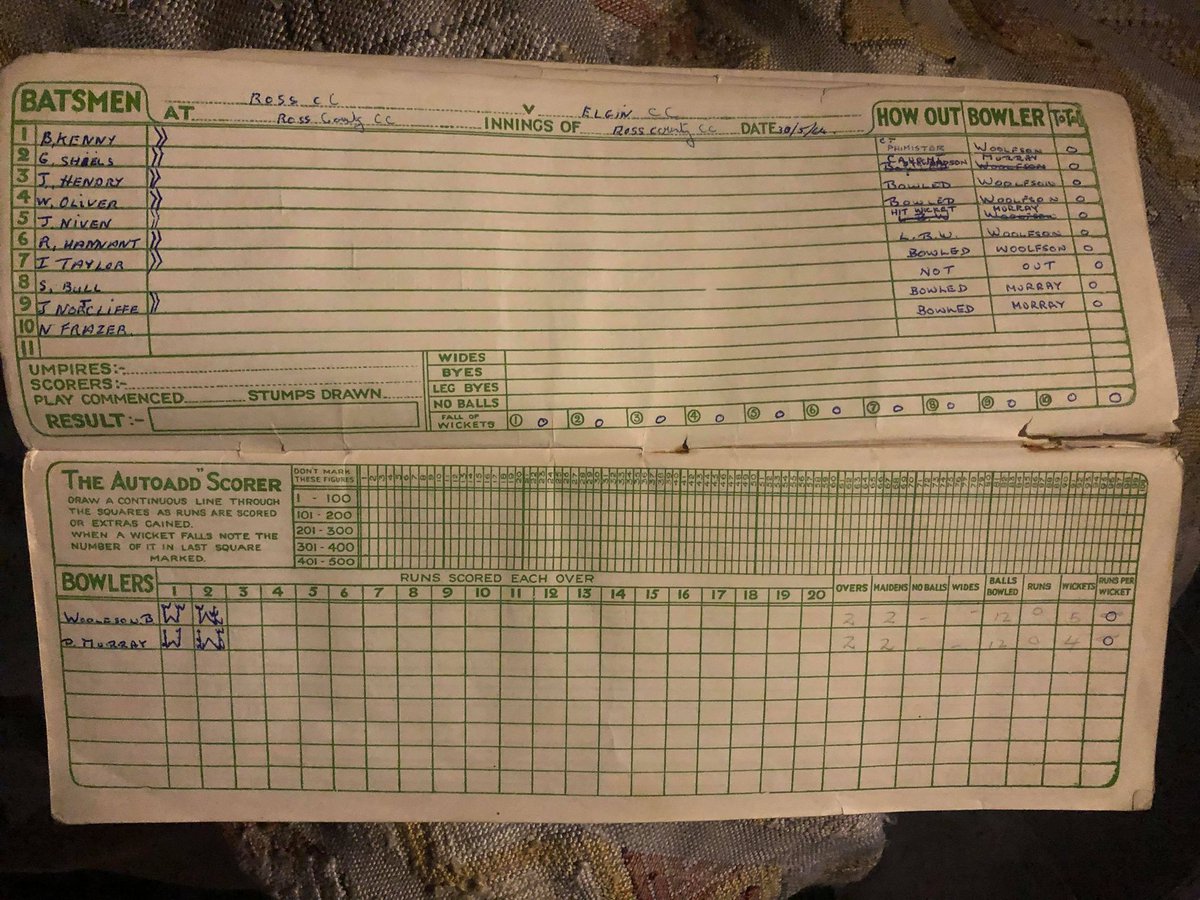 BATSMEN AT Ross CC V ELGIN CC HOW OUT BOWLER TOTAL
Ross County CC INNINGS OF Ross County CC DATE 30/5/64
1 B. KENNY CT PHIMISTER WOOLFSON 0
2 G. SHIELS MURRAY WOOLFSON 0
3 J. HENDRY BOWLED WOOLFSON 0
4 W. OLIVER BOWLED WOOLFSON 0
5 J. NIVEN HIT WICKET L.B.W MURRAY WOOLFSON 0
6 R. HAMNANT L.B.W. WOOLFSON 0
7 I TAYLOR BOWLED WOOLFSON 0
8 S. BULL NOT OUT 0
9 J NORCLIFFE BOWLED MURRAY 0
10 N FRAZER. BOWLED MURRAY 0
11
UMPIRES:- WIDES
SCORERS:- BYES
PLAY COMMENCED STUMPS DRAWN LEG BYES
NO BALLS
RESULT:- FALL OF WICKETS 1 0 2 0 3 0 4 0 5 0 6 0 7 0 8 0 9 0 10 0 0
THE "AUTOADD" SCORER
DRAW A CONTINUOUS LINE THROUGH
THE SQUARES AS RUNS ARE SCORED
OR EXTRAS GAINED.
WHEN A WICKET FALLS NOTE THE
NUMBER OF IT IN LAST SQUARE
MARKED.
DON'T MARK
THESE FIGURES
1 - 100
101 - 200
201 - 300
301 - 400
401 - 500
BOWLERS RUNS SCORED EACH OVER
1 2 3 4 5 6 7 8 9 10 11 12 13 14 15 16 17 18 19 20 OVERS MAIDENS NO BALLS WIDES BALLS BOWLED RUNS WICKETS RUNS PER WICKET
WOOLFSON B 2 2 - - 12 0 5 0
D. MURRAY 2 2 - - 12 0 4 0